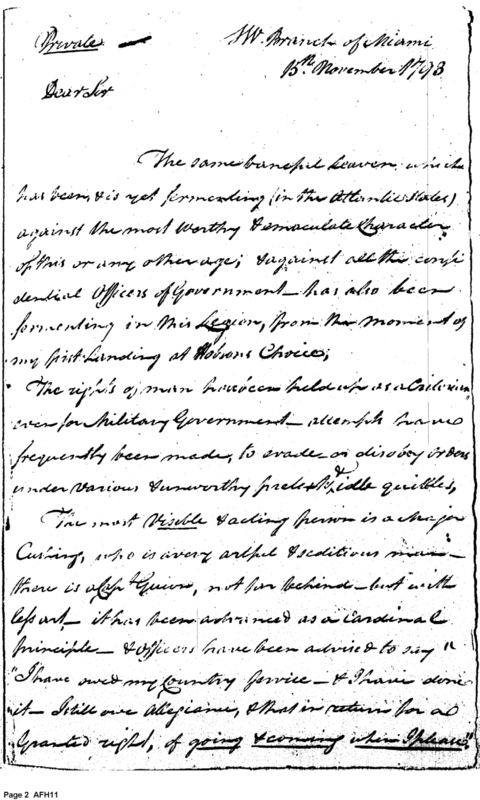 Private —
SW. Branch of Miami
15th. November 1793
Dear Sir
The same baneful Leaven, which
has been, & is yet fermenting (in the Atlantic States)
against the most worthy & emaculate Character
of this or any other age; & against all the confi
dential Officers of Government— has also been
fermenting in this Legion, from the moment of
my first Landing at Hobsons Choice;
The rights of man have been held up as a Criterion
even for Military Government— attempts have
frequently been made, to evade— or disobey orders
under various & unworthy pretexts, & idle quibbles,
The most Visible & acting person is a Major
Cushing, who is a very artful & seditious man—
there is a Capt Guion, not far behind— but with
less art— it has been advanced as a Cardinal
principle— & Officers have been advised to say "
"I have owed my Country Service— & I have done
it— I still owe Allegiance, & that in return for a
Granted right, of going & coming when I please"
Page 2 AFH11